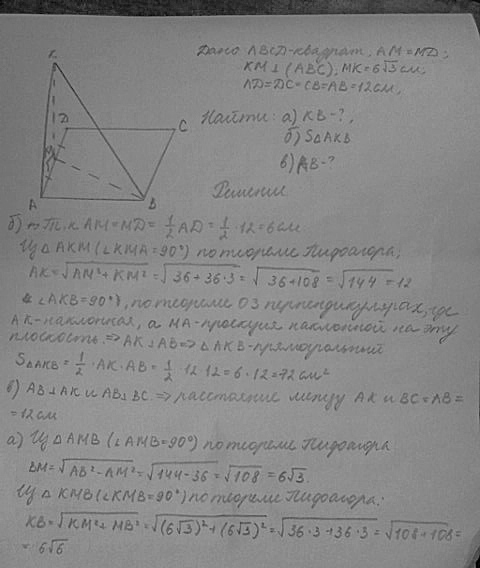 Дано ABCD-квадрат, AM=MD;
KM⊥(ABC), MK=6√3см,
AD=DC=CB=AB=12см,
Найти: а) KB-?,
б) S△AKB
в) AB-?
Решение
K
D
C
M
A
B
б) т.к AM=MD=1/2AD=1/2·12=6см
Из △AKM(∠KMA=90°) по теореме Пифагора;
AK=√AM²+KM²=√36+36·3=√36+108=√144=12
∠AKB=90°), по теореме О3 перпендикулярах, где
AK-наклонная, а MA-проекция наклонной на эту
плоскость ⇒ AK⊥AB ⇒ △AKB-прямоугольный
S△AKB=1/2·AK·AB=1/2·12·12=6·12=72см²
в) AB⊥AK и AB⊥BC ⇒ расстояние между AK и BC=AB=
=12см
а) Из △AMB(∠AMB=90°) по теореме Пифагора
BM=√AB²-AM²=√144-36=√108=6√3.
Из △KMB(∠KMB=90°) по теореме Пифагора:
KB=√KM²+MB²=√(6√3)²+(6√3)²=√36·3+36·3=√108+108=
=6√6